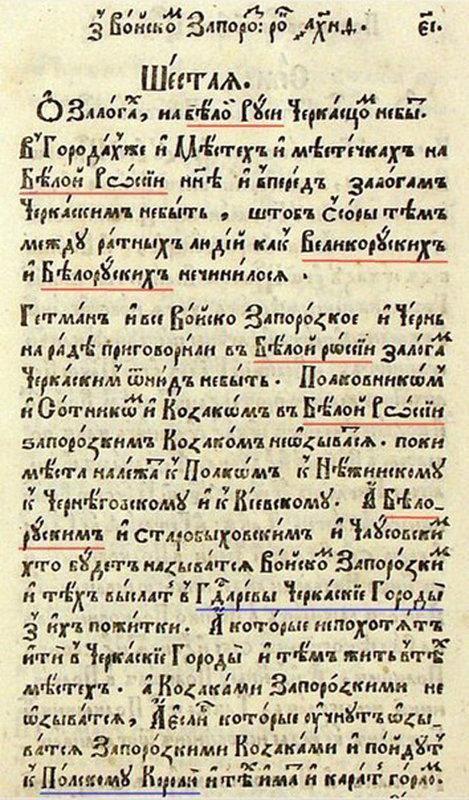 з̾ Войско᷍ Запоро᷍: ро᷍ ҂ахн҃д. е҃і.
Шестая.
Ѽ Залога᷍, на бѣло᷍ Руси Черкасцо᷍ небы᷍.
В̾ Городах̾же и Мѣстех̾ и мѣстечках на
Бѣлой Рѡсіи ннѣ и вперед̾ залогамъ
Черкасским небыть, штоб̾ ссоры тѣмъ
между ратных̾ людій как̾ Великоруских̾
и Бѣлоруских̾ нечинилося.
Гетманъ и все Войско Запорозкое и Чернь
на радѣ приговорили въ Бѣлой рѡсіи залога᷍
Черкаским᷍ ѿнюдъ небыть. Полковникѡм᷍
и Сотникѡ᷍ и Козакѡмъ въ Бѣлой Рѡсіи
запорозкимъ Козакомъ неѡзыватся. поки
мѣста належа᷍ к̾ Полкѡмъ к̾ Нѣжинскому
к̾ Чернѣговскому и к̾ Кіевскому. А Бѣло-
рускимъ и старобыховскимъ и Чаусовски᷍
хто будетъ называтся Войско᷍ Запорозки᷍
и тѣхъ выслат̾ в̾ Гдⷭ҇аревы Черкаскіе Городы
з̾ ихъ пожитки. А которые непохотятъ
ити в̾ Черкаскіе Городы и тѣм̾ жить в̾ тѣ᷍
мѣстех̾. а Козаками Запорозкими не
ѡзыватся, А если᷍ которые оучнутъ ѡзы-
ватся Запорозкими Козаками и пойдут̾
к̾ Полскому Королю и тѣ᷍ има᷍ и карат̾ горло᷍.